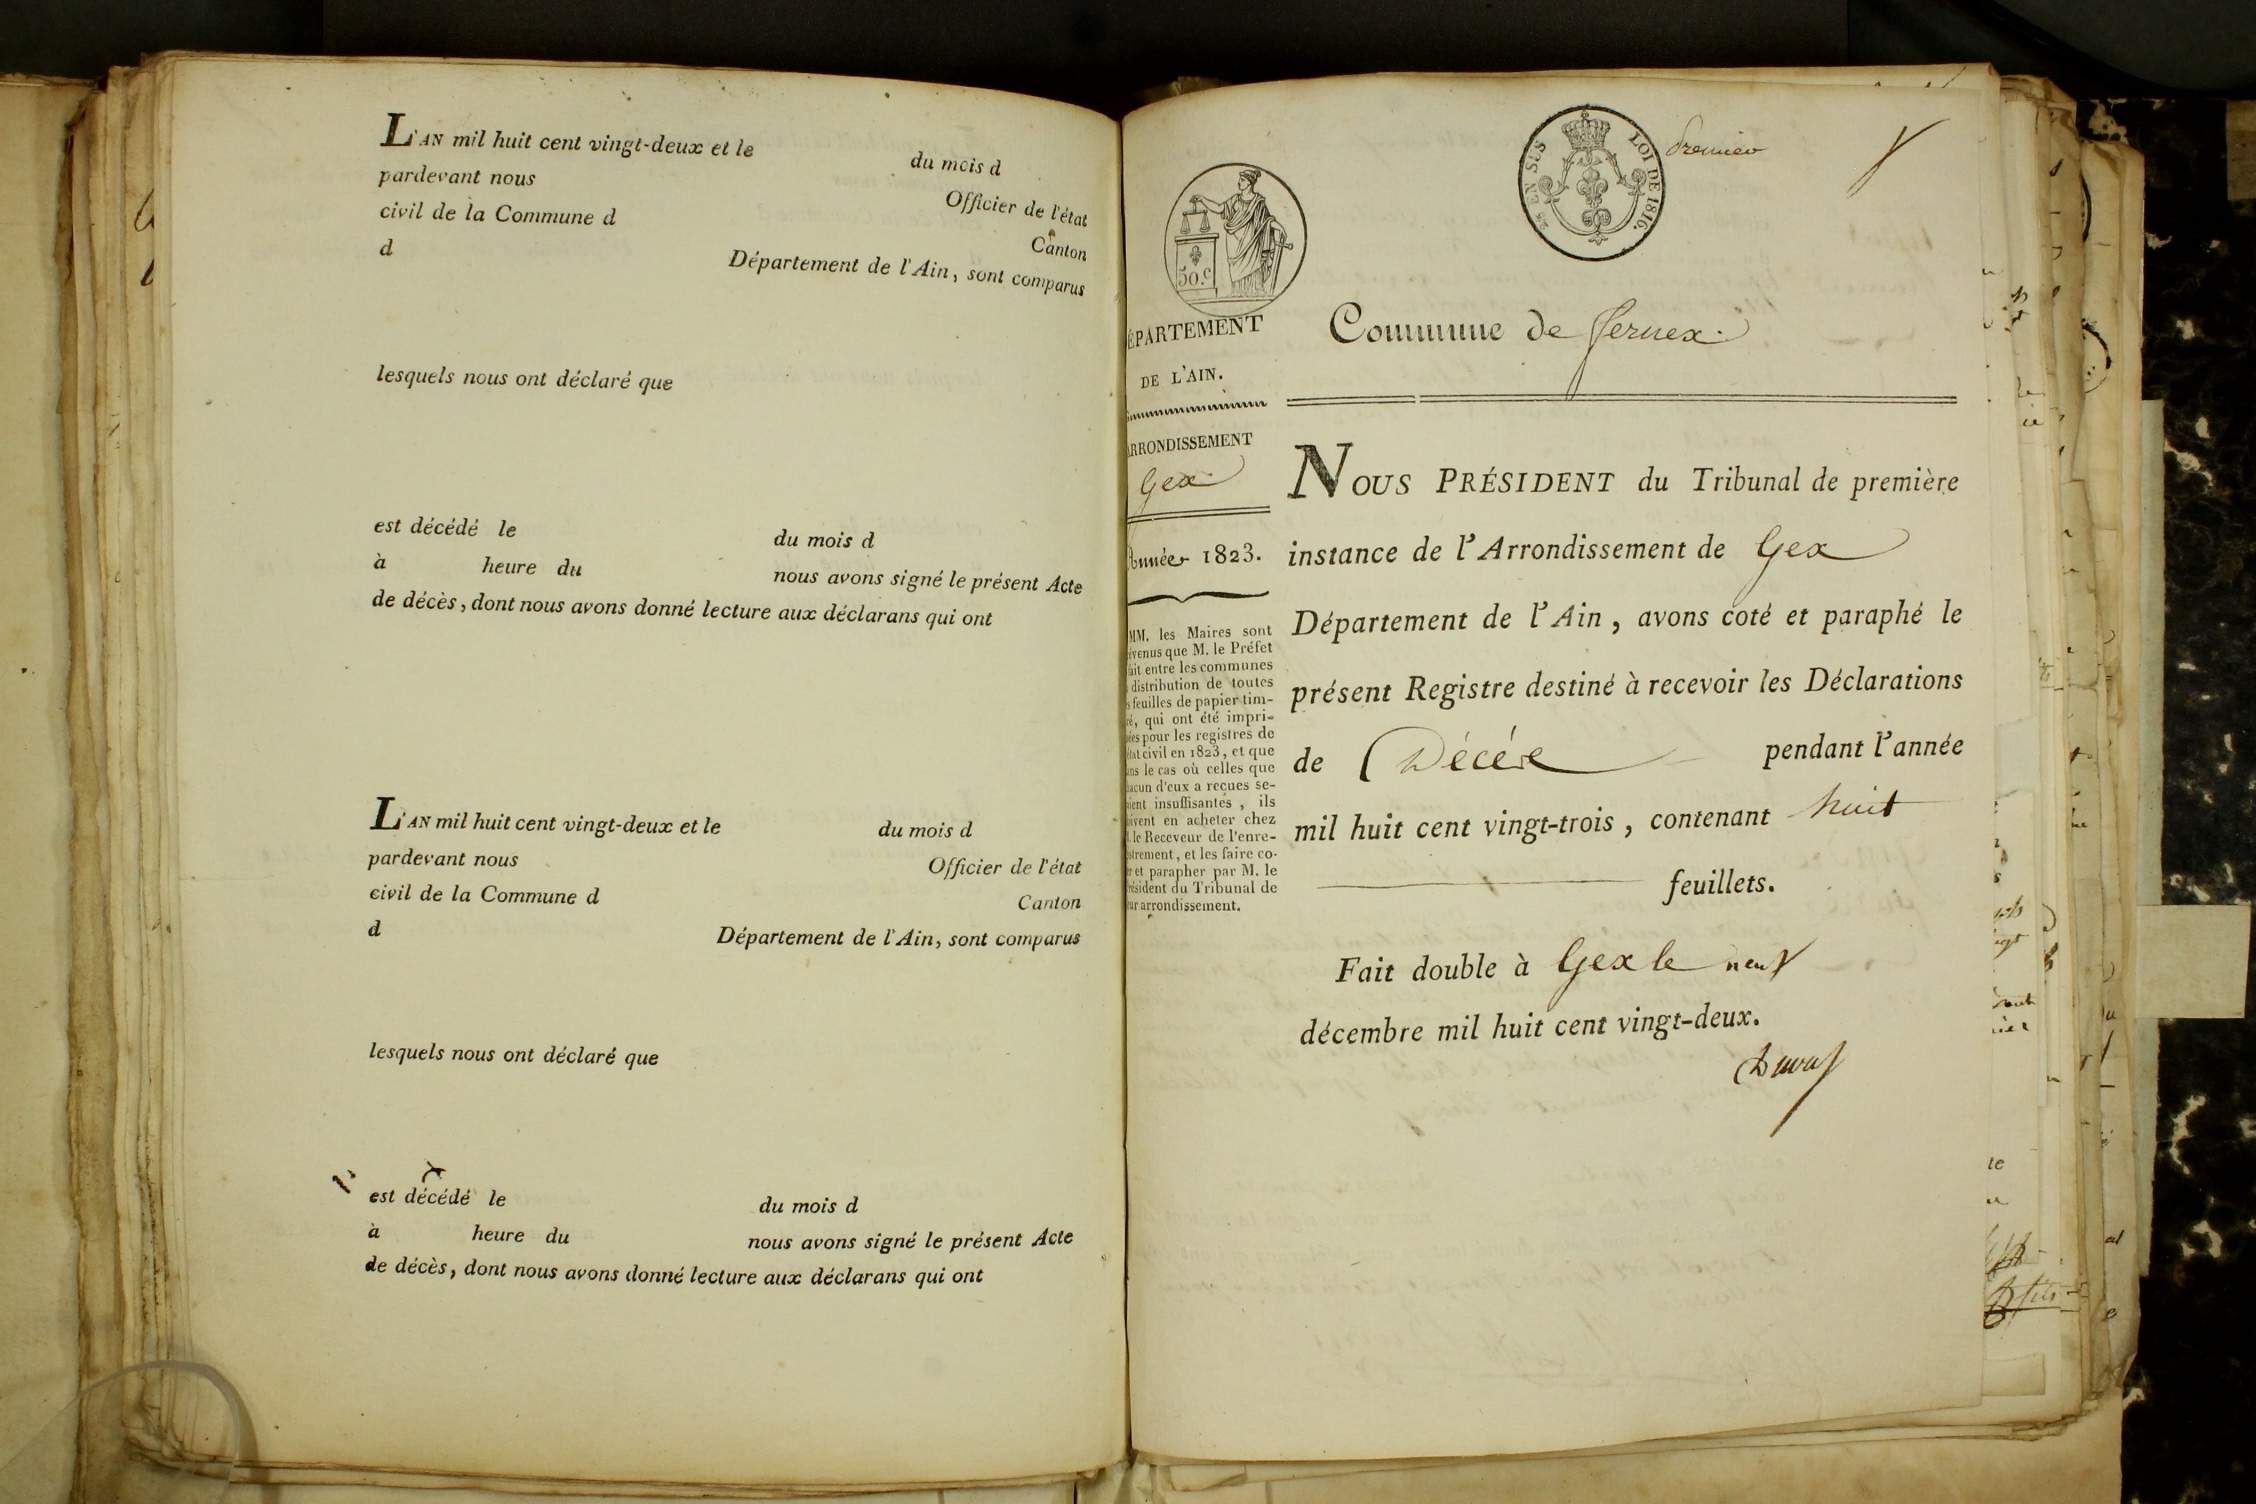 L'AN mil huit cent vingt-deux et le du mois d
pardevant nous Officier de l'état
civil de la Commune d Canton
d Département de l'Ain, sont comparus
lesquels nous ont déclaré que
est décédé le du mois d
à heure du nous avons signé le présent Acte
de décès, dont nous avons donné lecture aux déclarans qui ont
L'AN mil huit cent vingt-deux et le du mois d
pardevant nous Officier de l'état
civil de la Commune d Canton
d Département de l'Ain, sont comparus
lesquels nous ont déclaré que
est décédé le du mois d
à heure du nous avons signé le présent Acte
de décès, dont nous avons donné lecture aux déclarans qui ont
50.c
EN SUS LOI DE 1816.
Premier
ÉPARTEMENT
DE L'AIN.
ARRONDISSEMENT
Gex
Année 1823.
MM. les Maires sont
évenus que M. le Préfet
fait entre les communes
distribution de toutes
s feuilles de papier tim-
ré, qui ont été impri-
ées pour les registres de
état civil en 1823, et que
ans le cas où celles que
hacun d'eux a reçues se-
aient insuffisantes, ils
oivent en acheter chez
I. le Receveur de l'enre-
istrement, et les faire co-
er et parapher par M. le
résident du Tribunal de
eur arrondissement.
Commune de Fernex.
NOUS PRÉSIDENT du Tribunal de première
instance de l'Arrondissement de Gex
Département de l'Ain, avons coté et paraphé le
présent Registre destiné à recevoir les Déclarations
de Décès pendant l'année
mil huit cent vingt-trois, contenant huit
feuillets.
Fait double à Gex le neuf
décembre mil huit cent vingt-deux.